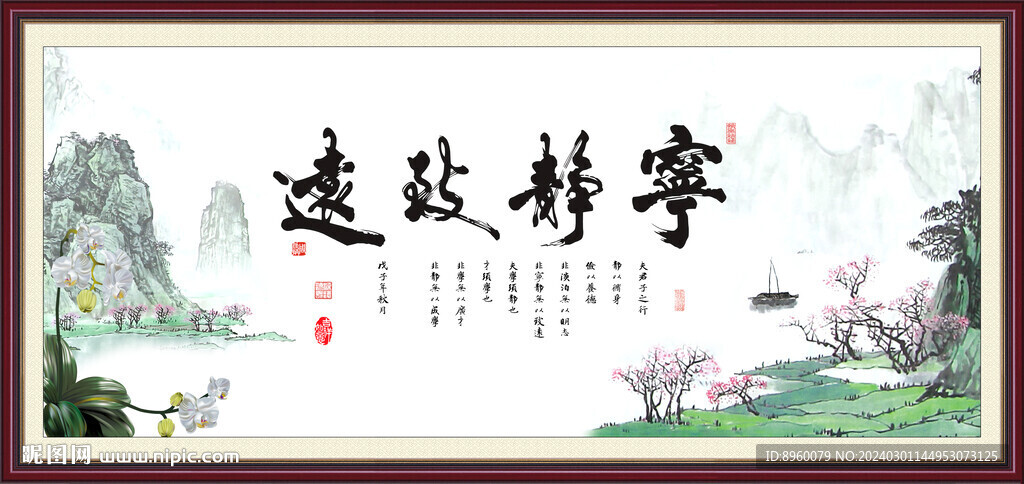 寧靜致遠
夫君子之行
靜以脩身
儉以養德
非淡泊無以明志
非寧靜無以致遠
夫學須靜也
才須學也
非學無以廣才
非靜無以成學
戊子年秋月
昵图网 www.nipic.com
ID:8960079 NO:20240301144953073125